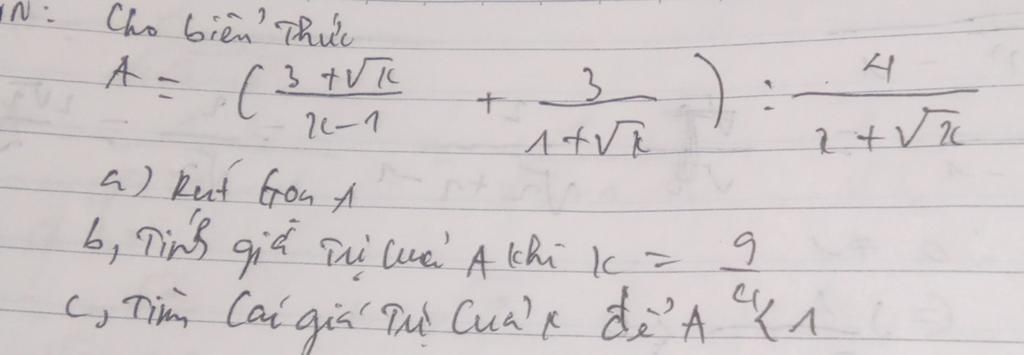 N: Cho biển thức
A = ( (3 + √x)/(x - 1) + 3/(1 + √x) ) : 4/(x + √x)
a) Rút gọn A
b, Tính giá trị của A khi x = 9/4
c, Tìm Các giá trị của x để A < 1